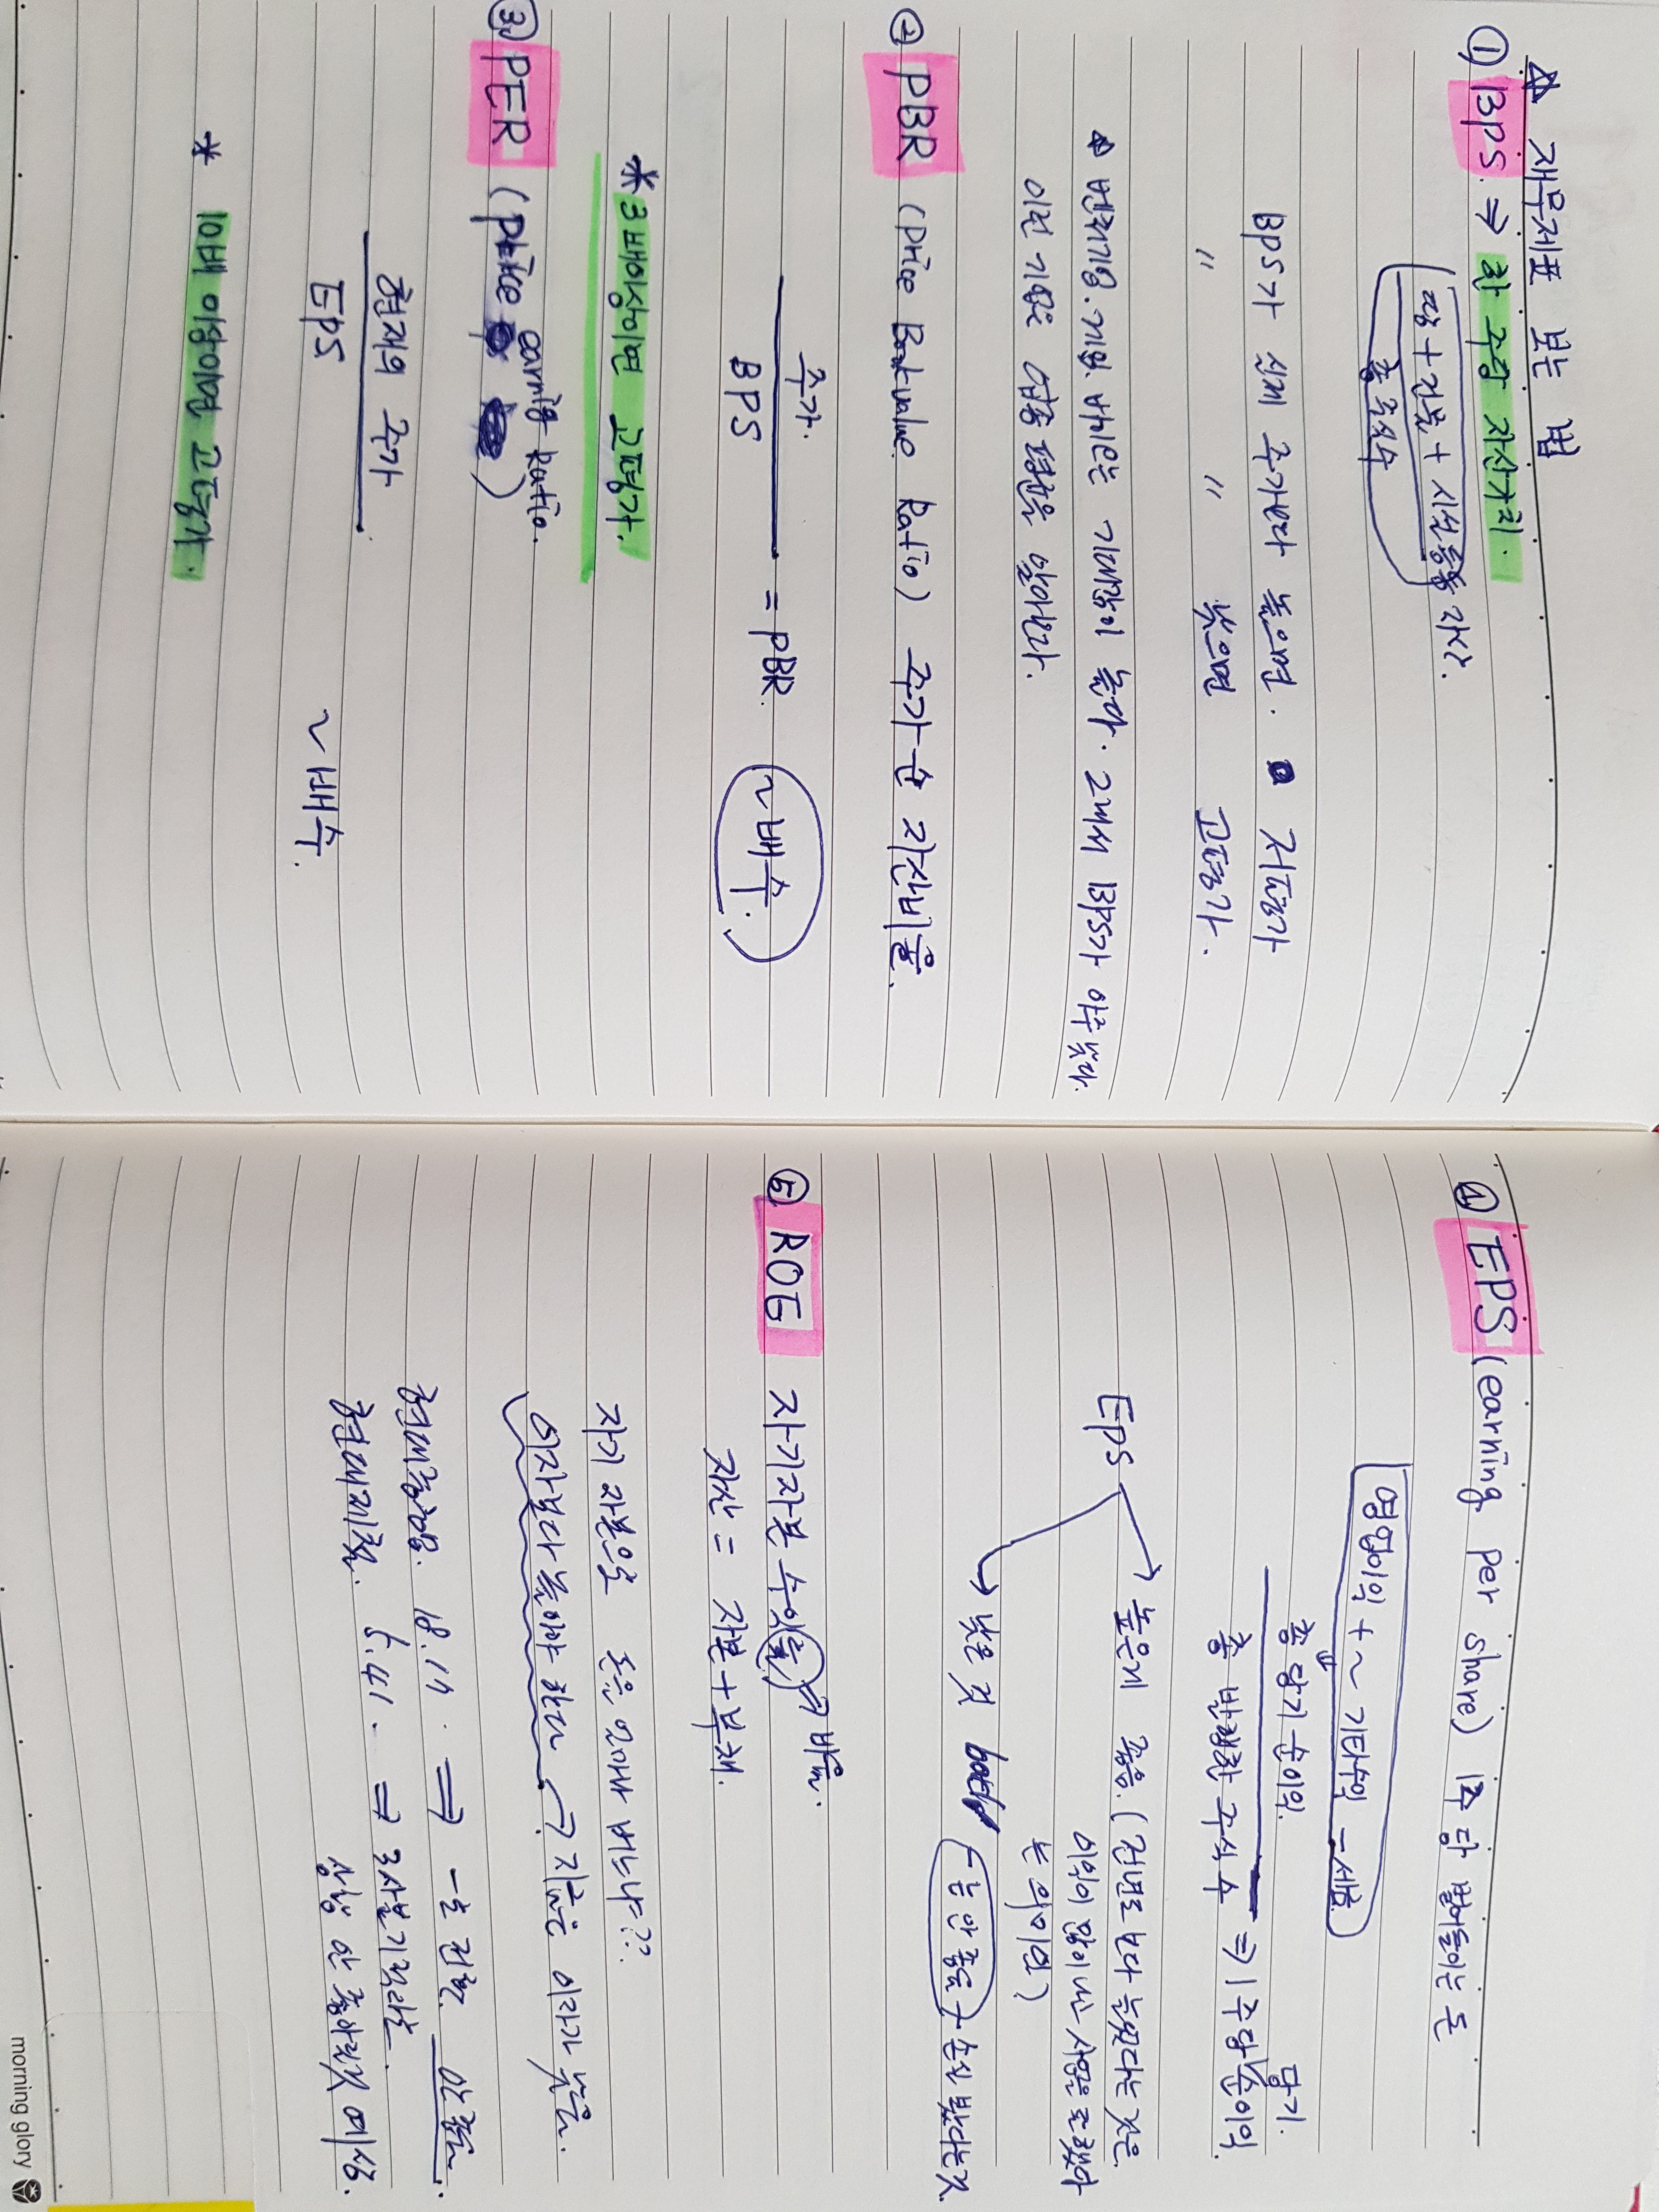 ☆ 재무제표 보는 법
① BPS. ⇒ 한 주당 자산가치.
땅 + 건물 + 시설등등 자산.
총 주식수
BPS가 실제 주가보다 높으면. 저평가
〃 〃 낮으면 고평가.
벤처기업. 기업. 바이오는 기대감이 높다. 그래서 BPS가 아주 낮다.
이런 기업은 업종 평균을 알아본다.
② PBR (Price Bookvalue Ratio) 주가순 자산비율.
주가.
BPS
= PBR. ~배수.
* 3배이상이면 고평가.
③ PER (price earning Ratio.)
현재의 주가
EPS
~배수.
* 10배 이상이면 고평가.
④ EPS (earning per share) 1주당 벌어들이는 돈
영업이익 + ~ 기타수익 - 세금
총 당기순이익.
총 발행한 주식 수 ⇒ 1주당 당기 순이익.
EPS
높은게 좋음. (전년도 보다 높았다는 것은
이익이 많이 나는 사업을 잘했다
는 의미임)
낮은 것 (-는 안좋음) 손실 봤다는것.
⑤ ROE 자기자본 수익률 → 비율.
자산 = 자본 + 부채.
자기 자본으로 돈을 얼마나 버느냐??
이자보다 높아야 한다 → 지금은 이자가 낮음.
현대중공업. 18.14. ⇒ -로 전환. 안좋음.
현대제철. 6.41. ⇒
상황 안 좋아질것 예상.
morning glory